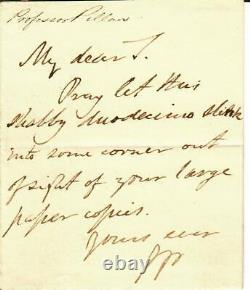 Professor Pillans
My dear T.
Pray let this
shabby duodecimo slink
into some corner out
of sight of your large
paper copies.
Yours ever